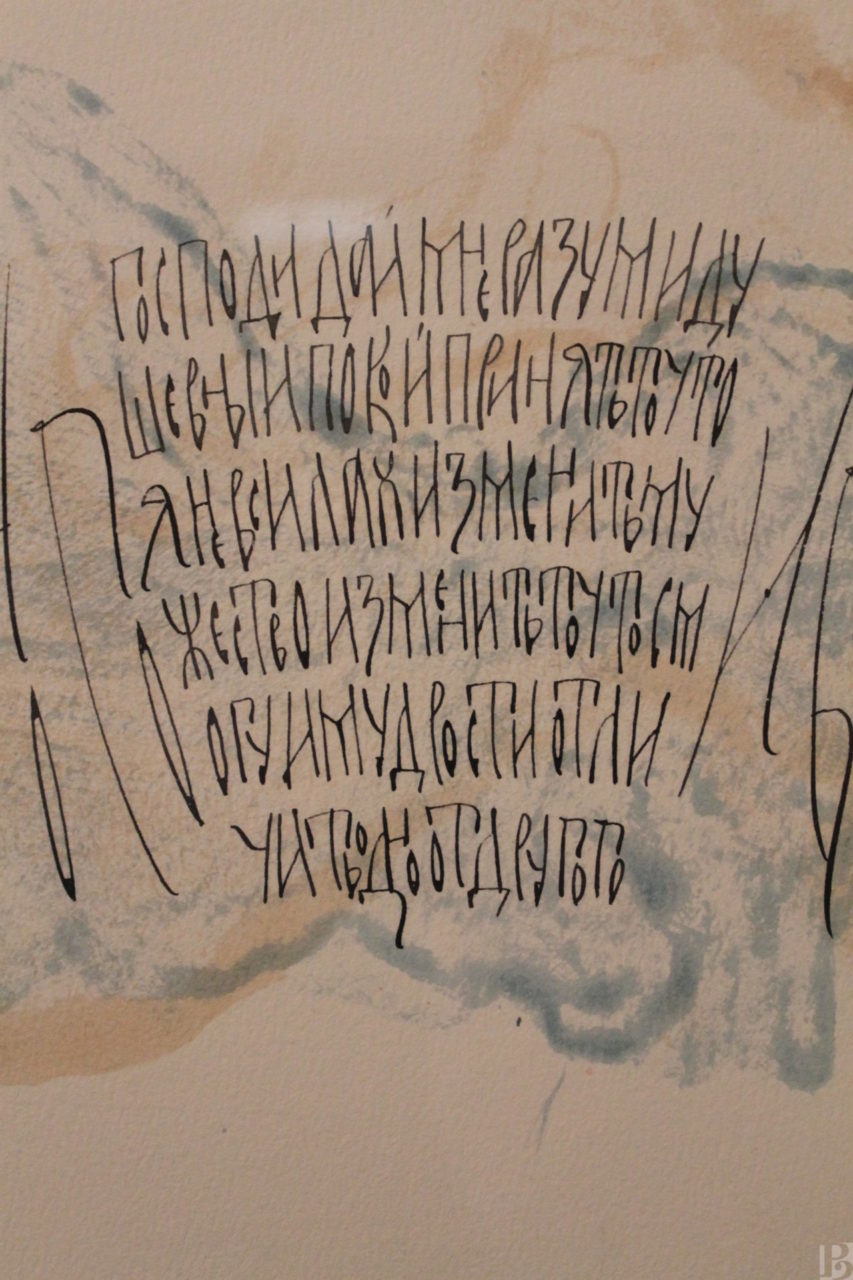 ГОСПОДИ ДАЙ МНЕ РАЗУМ И ДУ
ШЕВНЫЙ ПОКОЙ ПРИНЯТЬ ТО ЧТО
Я НЕ В СИЛАХ ИЗМЕНИТЬ МУ
ЖЕСТВО ИЗМЕНИТЬ ТО ЧТО СМ
ОГУ И МУДРОСТИ ОТЛИ
ЧИТЬ ОДНО ОТ ДРУГОГО